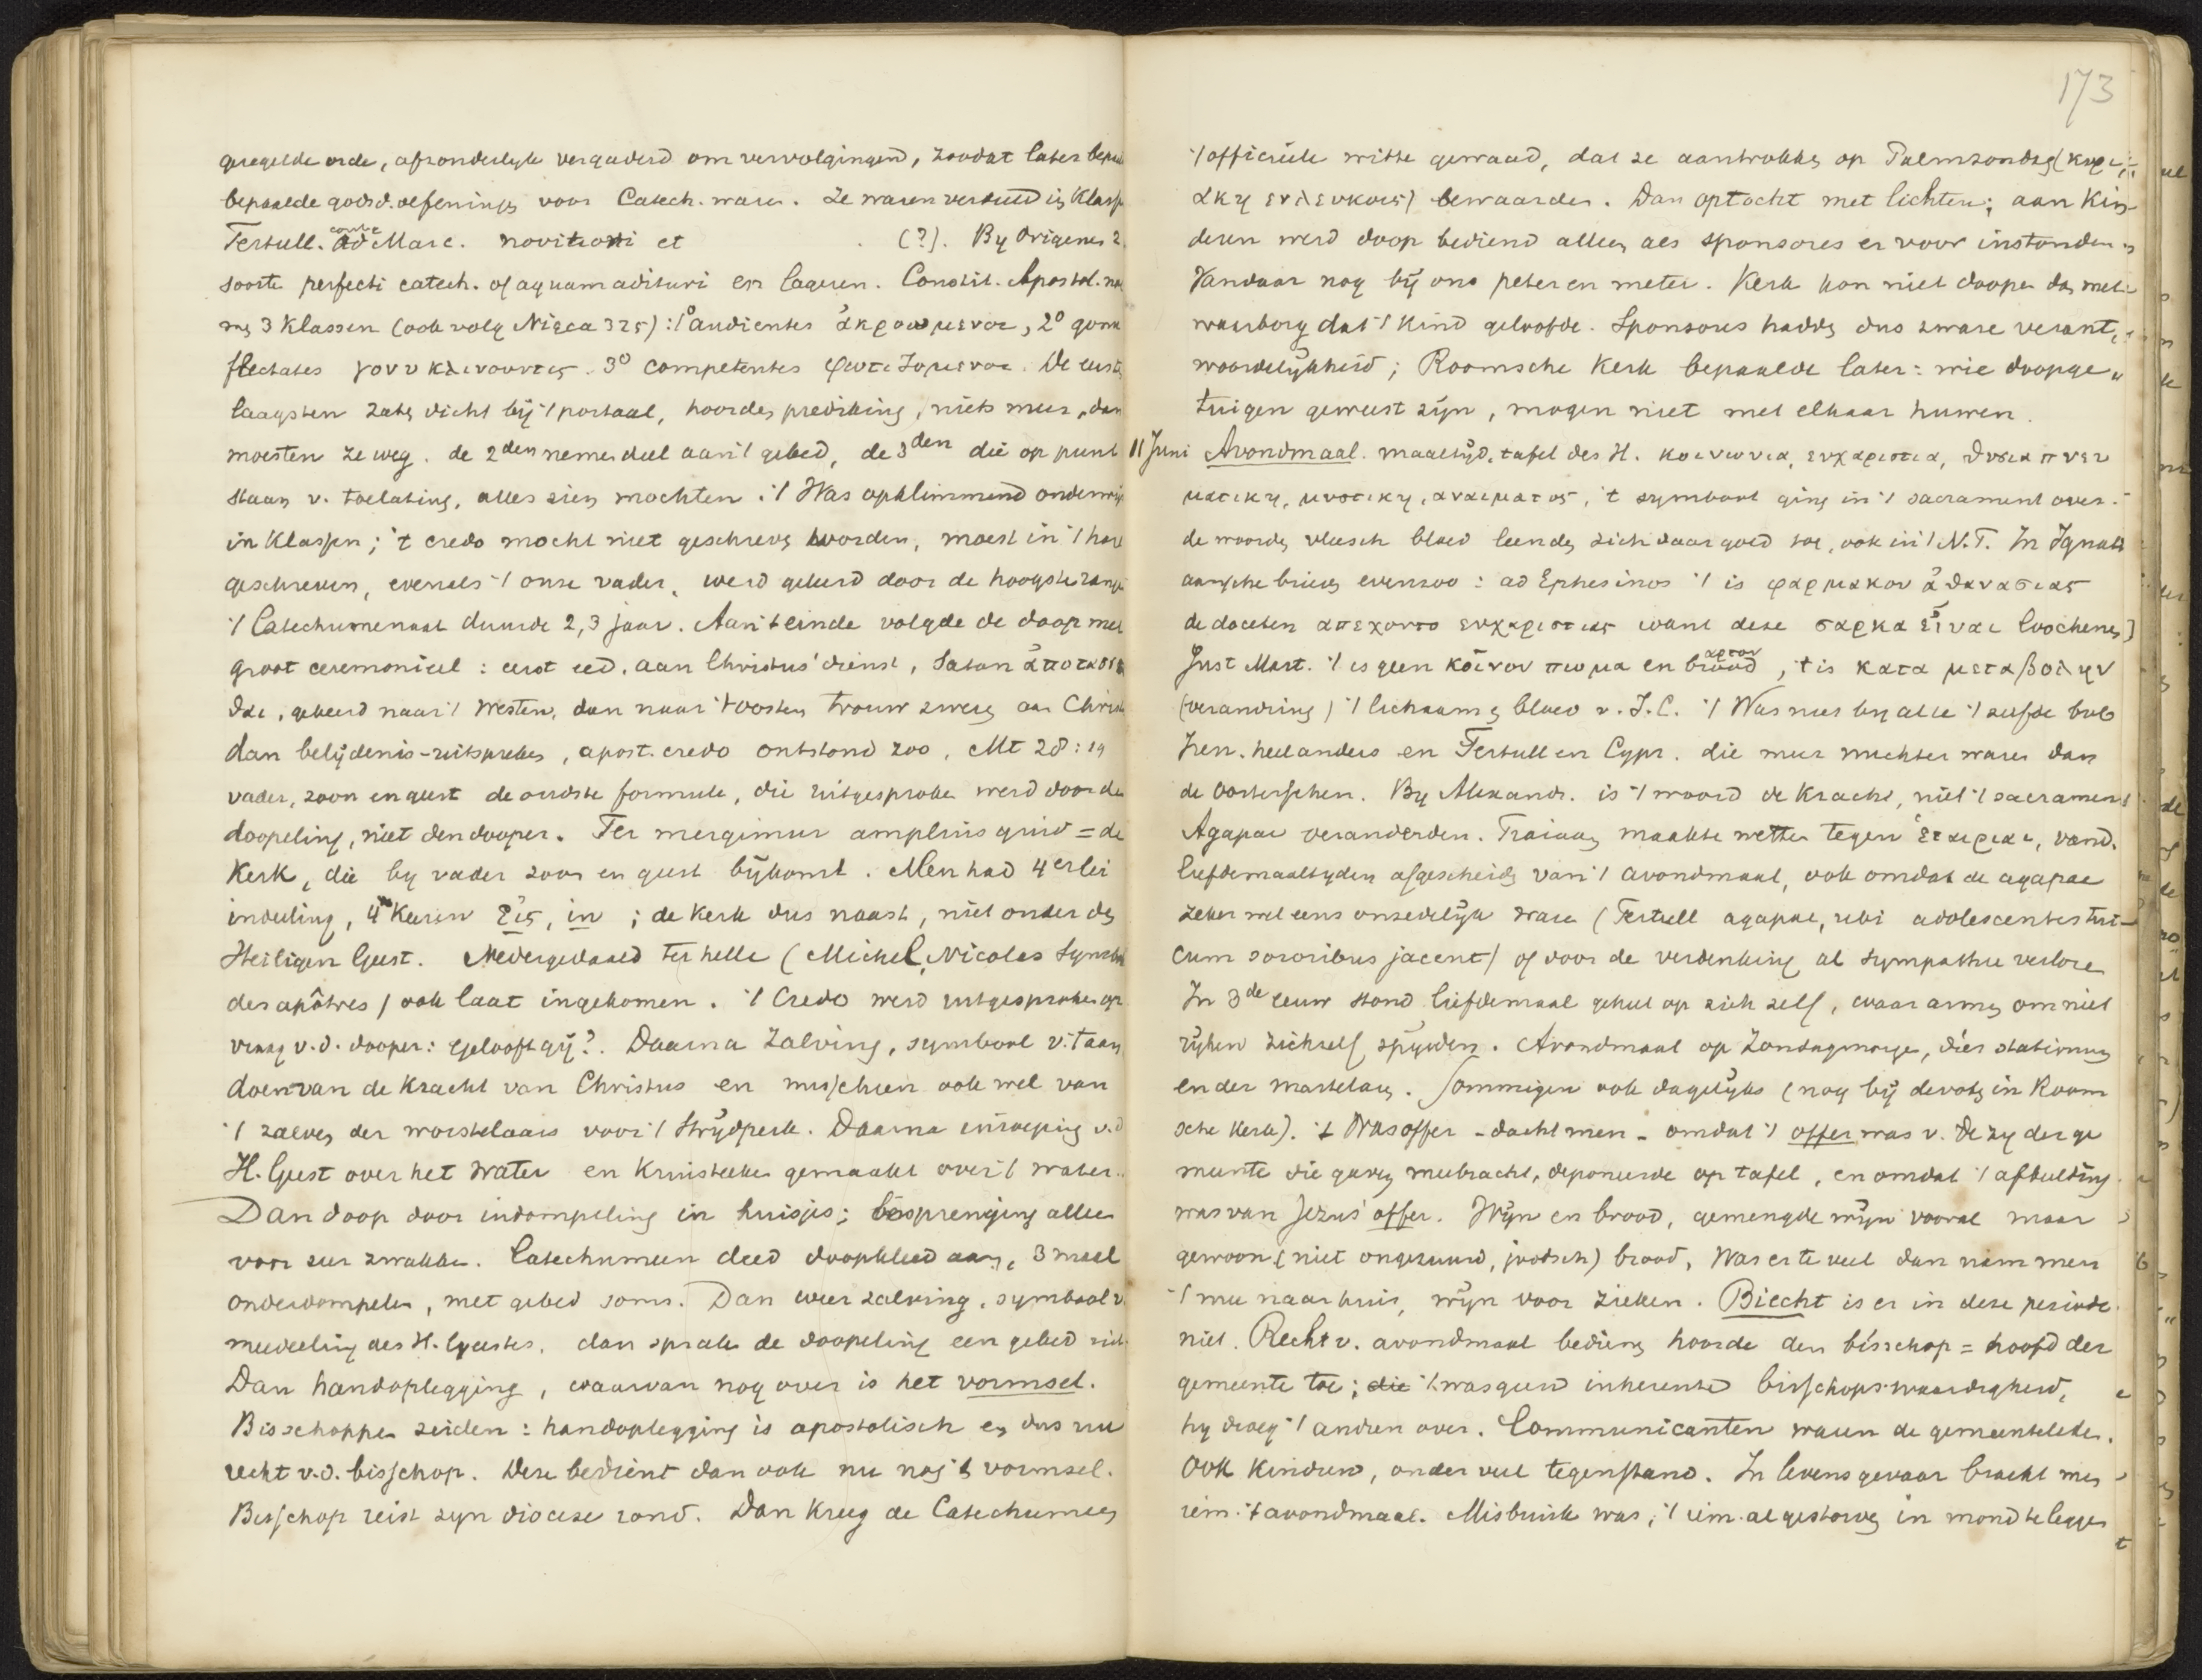 geregelde orde, afzonderlyk vergaderd om vervolgingen, zoodat later
bepaalde godsd. oefeningen voor Catech. waren. Ze waren verdeeld in Klass
Tertull. contr Marc. et (?). By Origenes 2
soorten perfecti catech. of aquam adituri en lageren. Constit. Apostol.
3 Klassen (ook volg Nicea 325): 1° audientes ἀκροωμενοι, 2° genu
flectates γονυ κλινοντες. 3° competentes φωτιζομενοι. De eerste
laagsten zaten dicht bij 't portaal, hoorden prediking, niets meer, dan
moesten ze weg. de 2den nemen deel aan 't gebed, de 3den die op punt
staan v. toelating, alles zien mochten. 't Was opklimmend onderwijs
in Klassen; 't credo mocht niet geschreven worden, moest in 't hart
geschreven, evenals 't onze vader, werd geleerd door de hoogste rang
't Catechumenaat duurde 2, 3 jaar. Aan 't einde volgde de doop met
groot ceremonieel: eerst eed. aan Christus' dienst, Satan ἀποτασσε
σθαι, gekeerd naar 't Westen, dan naar 't Oosten trouw zweren aan Christ
dan belijdenis-uitspreken, apost. credo ontstond zoo. Mt 28:19
vader, zoon en geest de oudste formule, die uitgesproken werd door den
doopeling, niet den dooper. Ter mergimur amplius quid = de
Kerk, die by vader zoon en geest bijkomt. Men had 4erlei
indeeling, 4 Keeren εἰς, in; de Kerk dus naast, niet onder den
Heiligen Geest. Nedergedaald ter helle (Michel Nicolas Symbole
des apôtres) ook laat ingekomen. 't Credo werd uitgesproken op
vraag v.d. dooper: gelooft gij?. Daarna Zalving, symbool v. 't aan
doen van de Kracht van Christus en misschien ook wel van
't zalven der worstelaars voor 't Strijdperk. Daarna inroeping v.d
H. Geest over het Water en Kruisteeken gemaakt over 't water.
Dan doop door indompeling in huisjes; besprenging alleen
voor zeer zwakken. Catechumeen deed doopkleed aan, 3 maal
onderdompelen, met gebed soms. Dan weer zalving, symbool v.
meedeeling des H. Geestes, dan sprak de doopeling een gebed
Dan handoplegging, waarvan nog over is het vormsel.
Bisschoppen zeiden: handoplegging is apostolisch en dus nu
recht v.d. bisschop. Deze bedient dan ook nu nog 't vormsel.
Bisschop reist zyn diocese rond. Dan Kreeg de Catechumeen
173
't officieele witte gewaad, dat ze aantrokken op Palmzondag (κυρι
ακη εν λευκοις) bewaarden. Dan optocht met lichten; aan Kin
deren werd doop bediend alleen als sponsores er voor instonden
Vandaar nog bij ons peter en meter. Kerk kon niet doopen dan met
waarborg dat 't Kind geloofde. Sponsores hadden dus zware verant
woordelijkheid; Roomsche Kerk bepaalde later: wie doopge
tuigen geweest zijn, mogen niet met elkaar huwen.
11 Juni Avondmaal. maaltijd, tafel des H. κοινωνια, ευχαριστια, θυσια πνευ
ματικη, μυστικη, αναιματος, 't symbool ging in 't sacrament over.
de woorden vleesch bloed leenden zich daar goed toe, ook in 't N.T. In Ignati
aansche brieven evenzoo: ad Ephesinos 't is φαρμακον ἀθανασιας
de doceten απεχοντο ευχαριστιας want deze σαρκα εἰναι loochenen
Just Mart. 't is geen κοινον πωμα en brood αρτον, 't is κατα μεταβολην
(verandring) 't lichaam en bloed v. J.C. 't Was niet by alle 't zelfde bv bij
Iren. heel anders en Tertull en Cypr. die meer nuchter waren dan
de Oosterschen. By Alexandr. is 't woord de kracht, niet 't sacrament
Agapae veranderden. Traianus maakte wetten tegen ἑταιριαι, vand.
liefdemaaltyden afgescheiden van 't avondmaal, ook omdat de agapae
zeker wel eens onzedelijk waren (Tertull agapae, ubi adolescentes tui
cum sororibus jacent) of door de verdenking al sympathie verloren
In 3de eeuw stond liefdemaal geheel op zich zelf, waar armen om niet
rijken zichzelf spijsden. Avondmaal op Zondagmorgen, dies stationum
en der martelaren. Sommigen ook dagelijks (nog bij devoten in Room
sche Kerk). 't Was offer - dacht men - omdat 't offer was v. de zy der ge
meente die gaven meebracht, deponeerde op tafel, en omdat 't afbeelding
was van Jezus' offer. Wijn en brood, gemengde wijn vooral maar
gewoon (niet ongezuurd, joodsch) brood. Was er te veel dan nam men
't mee naar huis, wijn voor zieken. Biecht is er in deze periode
niet. Recht v. avondmaal bediening hoorde den bisschop = hoofd der
gemeente toe; die 't was geen inherente bisschopswaardigheid,
hy droeg 't andren over. Communicanten waren de gemeenteleden.
Ook kinderen, onder veel tegenstand. In levensgevaar bracht men
iem. 't avondmaal. Misbruik was, 't iem. al gestorven in mond te leggen